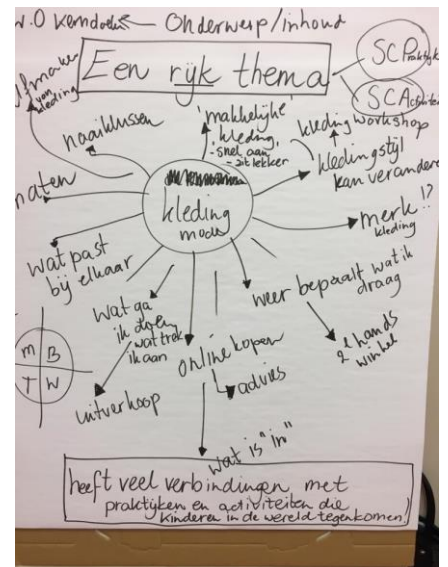 W.O Kerndoelen Onderwerp/inhoud
Een rijk thema
SCPraktijk
SCActiviteit
Zelfmaken
van
kleding
naaiklussen
'makkelijke'
kleding,
- snel aan
- zit lekker
kleding workshop
kledingstijl
kan veranderen
maten
kleding
mode
merk !?
kleding
wat past
bij elkaar
weer bepaalt wat ik
draag
2e hands
winkel
wat ga
ik doen,
wat trek
ik aan
uitverkoop
online kopen
advies
wat is "in"
M B
T W
heeft veel verbindingen met
praktijken en activiteiten die
kinderen in de wereld tegenkomen!